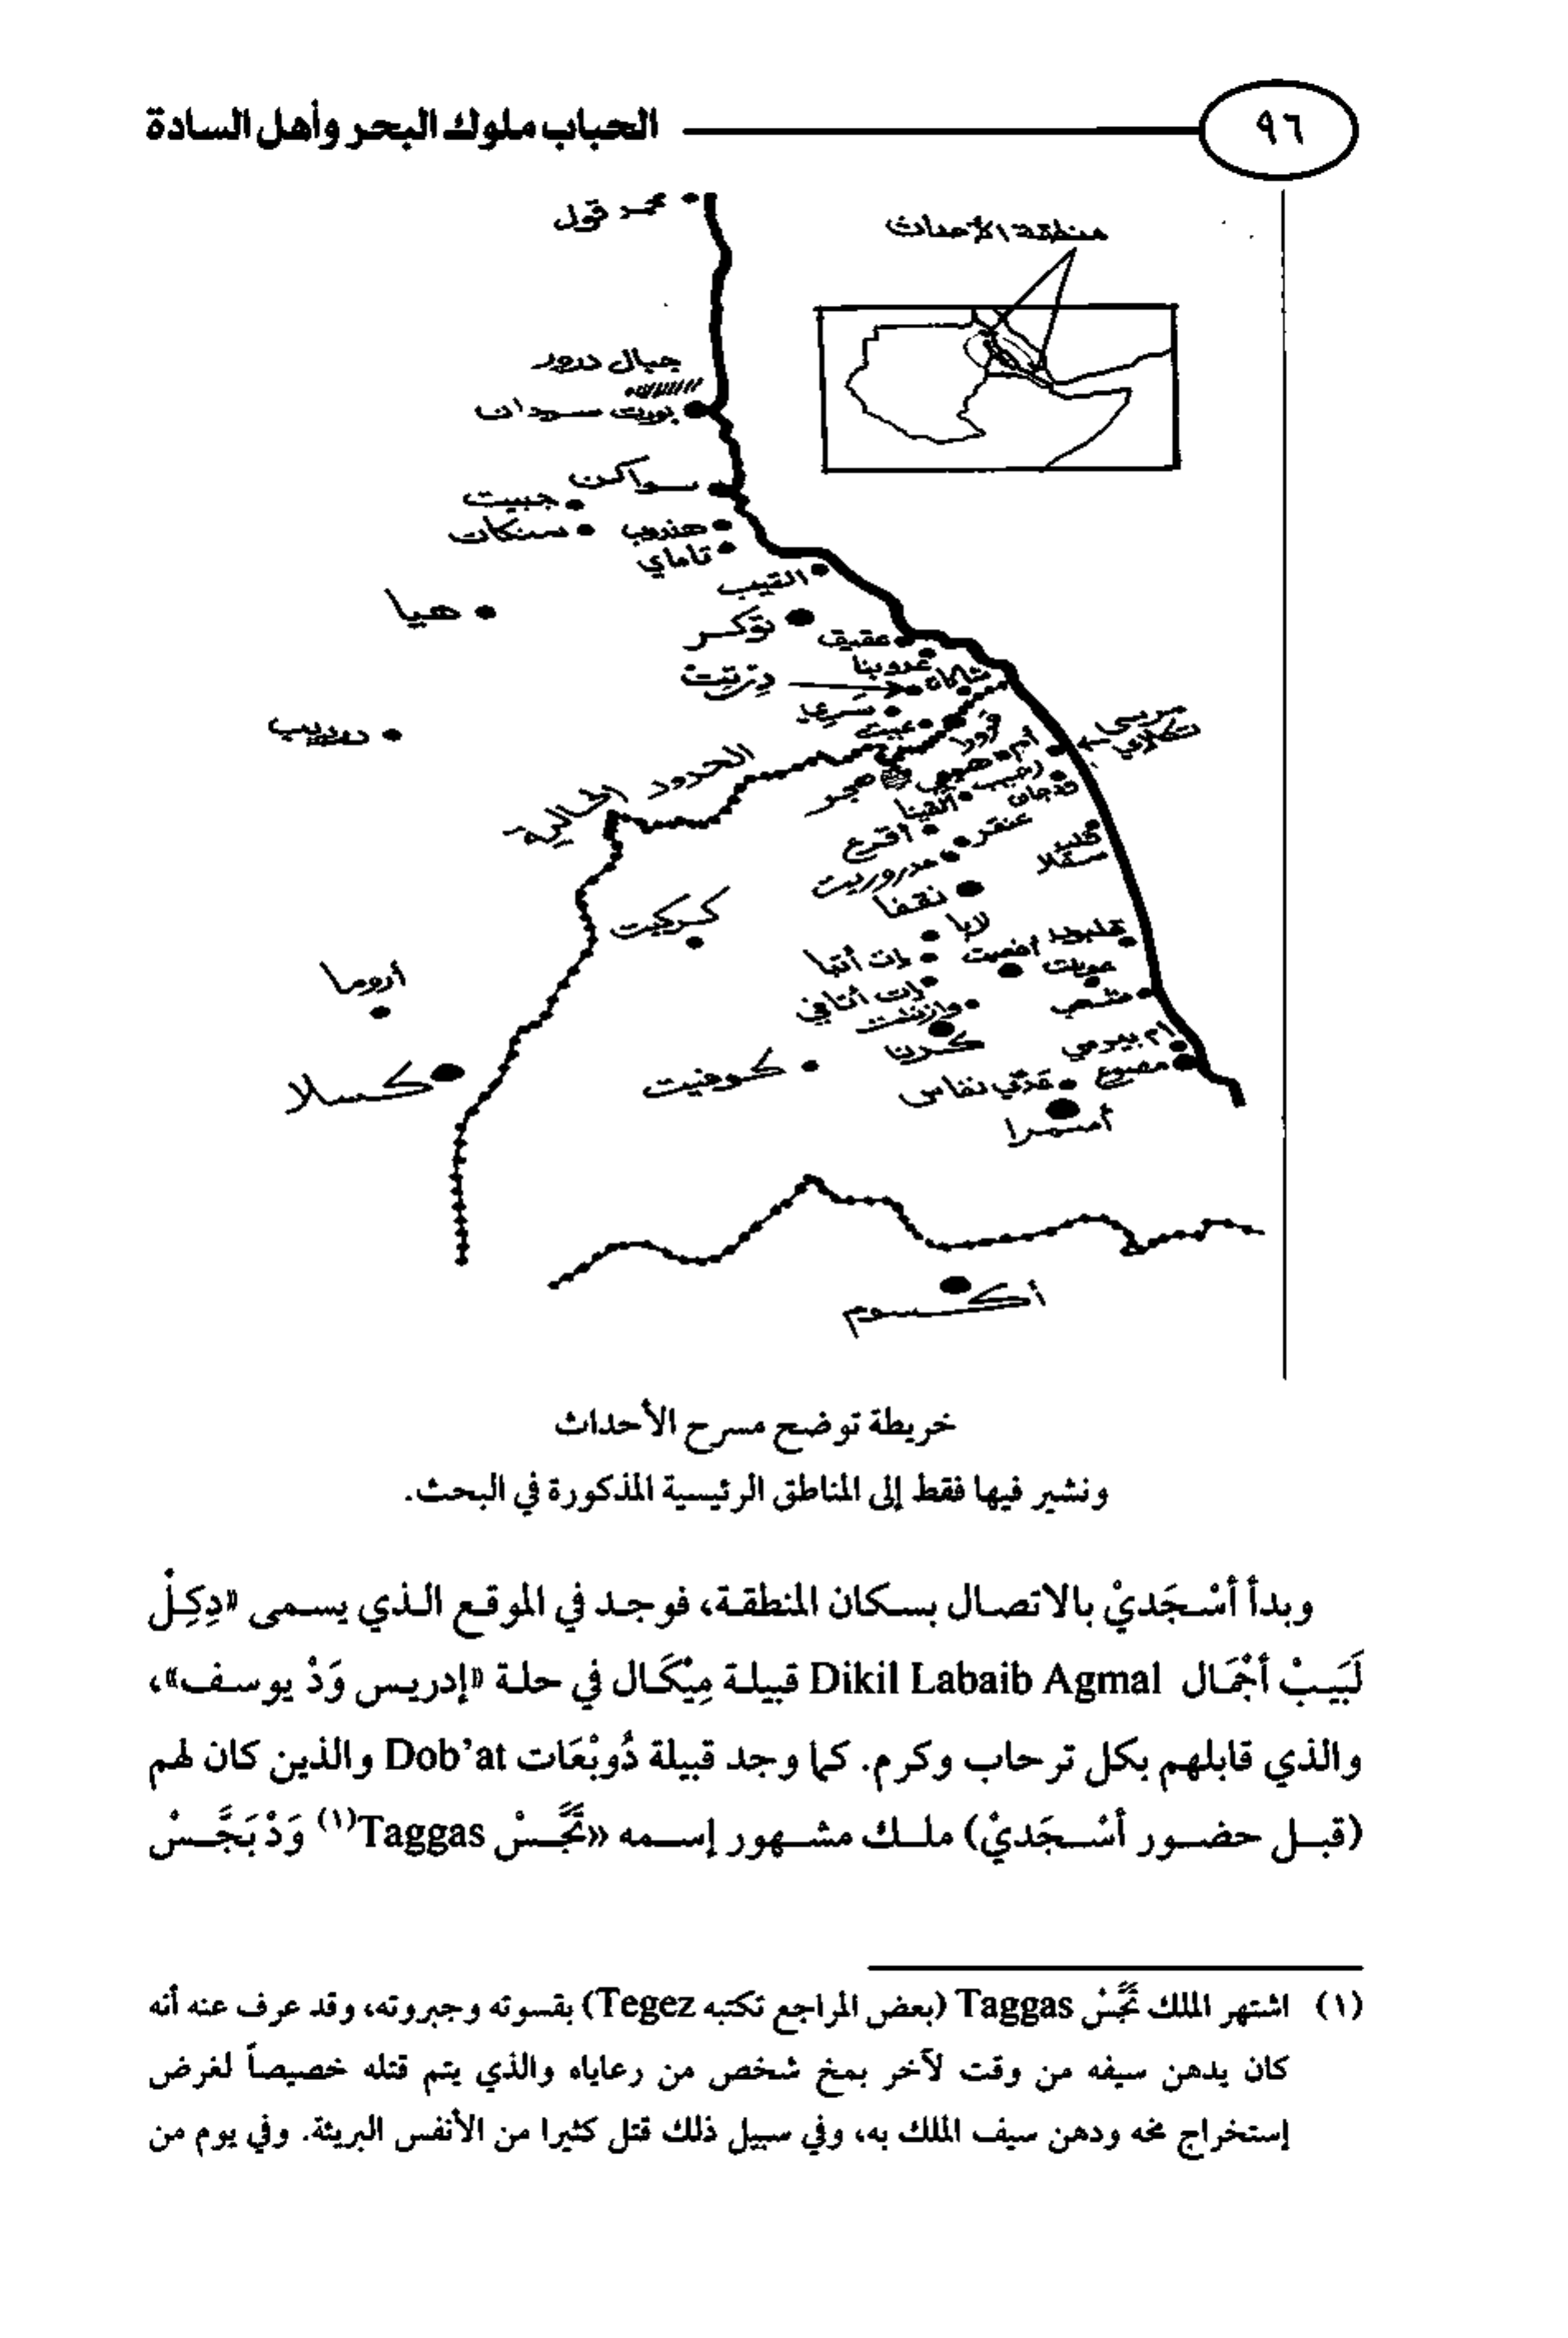 ٩٦
الحباب ملوك البحر وأهل السادة
محمد قول
منطقة الأحداث
جبال درور
بورت سودان
سواكن
جبيت
سنكات
هندوب
تاماي
القيب
هيا
توكر
عقيق
عدوبنا
الحدود الحالية
نقفا
كركبت
أروما
كسلا
كرن
كوفيت
أم بيرمي
مصوع
أسمرا
أكسوم
خريطة توضح مسرح الأحداث
ونشير فيها فقط إلى المناطق الرئيسية المذكورة في البحث.
وبدأ أسْجَديْ بالاتصال بسكان المنطقة، فوجد في الموقع الذي يسمى «دِكِلْ
لَبَيبْ أجْمَال Dikil Labaib Agmal قبيلة مِيْكَال في حلة «إدريس وَدْ يوسف»،
والذي قابلهم بكل ترحاب وكرم. كما وجد قبيلة دُوبْعَات Dob’at والذين كان لهم
(قبل حضور أسْجَديْ) ملك مشهور إسمه «تَجَّسْ Taggas(١) وَدْ بَجَّسْ
(١) اشتهر الملك تَجَّسْ Taggas (بعض المراجع تكتبه Tegez) بقسوته وجبروته، وقد عرف عنه أنه
كان يدهن سيفه من وقت لآخر بمخ شخص من رعاياه والذي يتم قتله خصيصاً لغرض
إستخراج مخه ودهن سيف الملك به، وفي سبيل ذلك قتل كثيرا من الأنفس البريئة. وفي يوم من